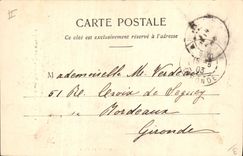 CARTE POSTALE
Ce côté est exclusivement réservé à l'adresse
Mademoiselle M. Verdeau
51 Rue Croix de Seguey
Bordeaux
Gironde